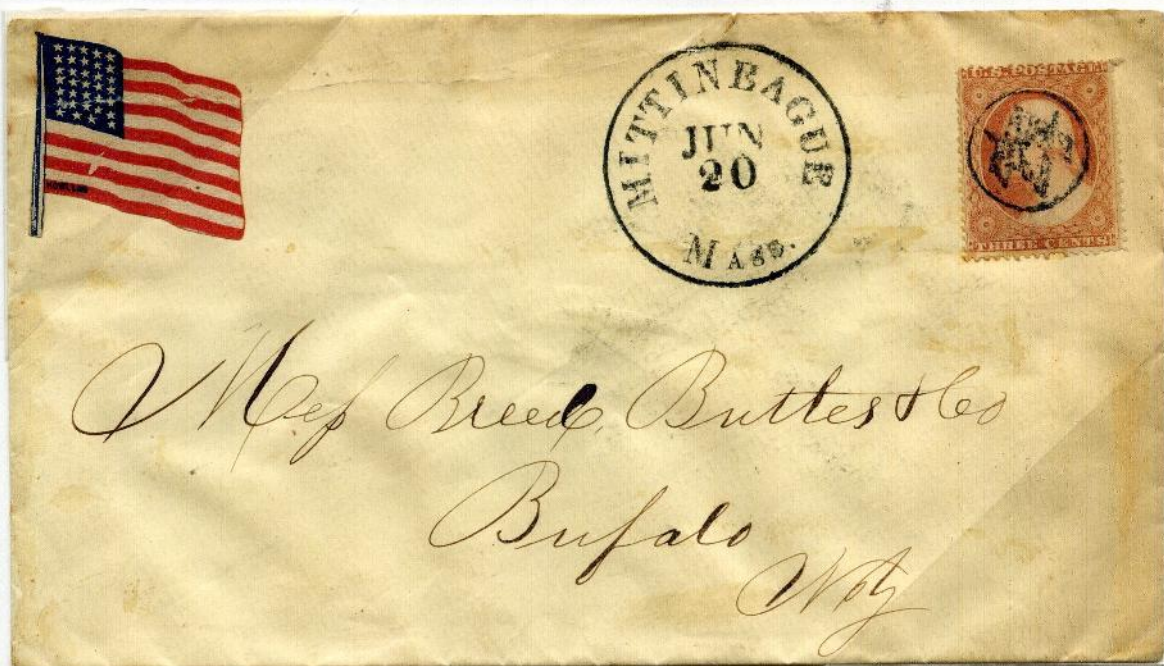 MITTINEAGUE
JUN
20
MASS.
U.S. POSTAGE
THREE CENTS
Mess Breed, Buttles & Co
Bufalo
NY